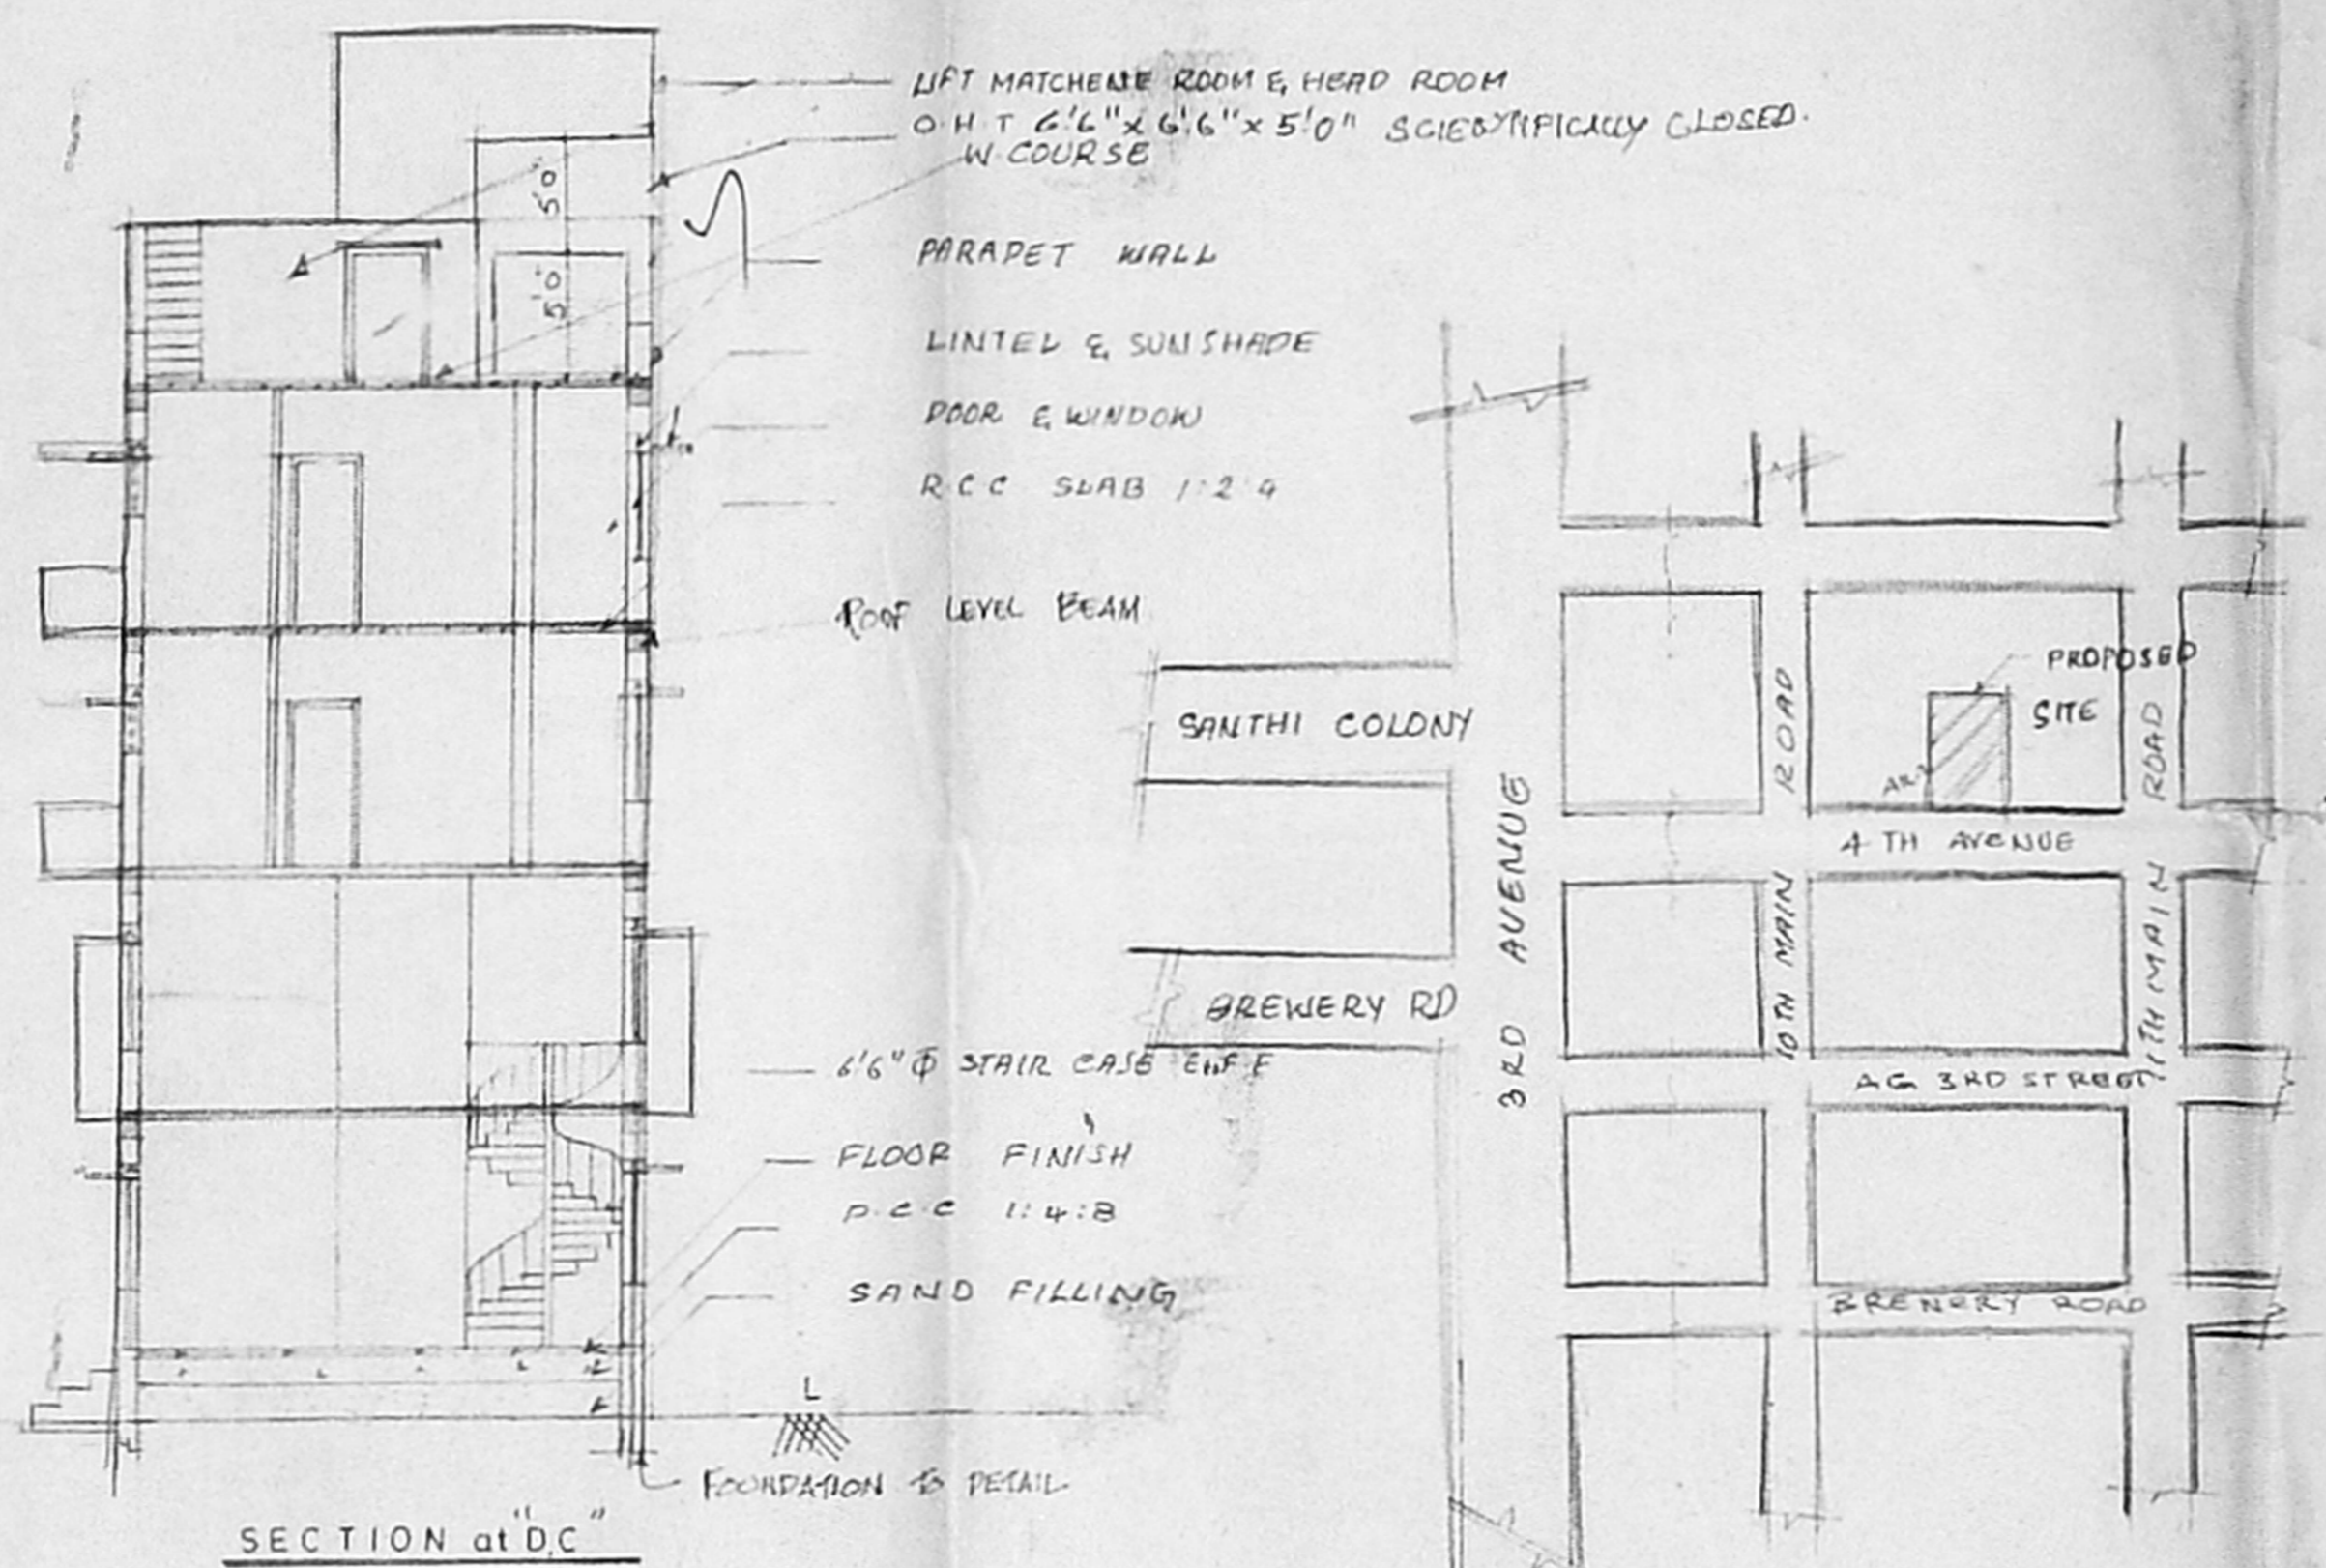 LIFT MATCHENE ROOM & HEAD ROOM
O.H.T 6'6" x 6'6" x 5'0" SCIEBYNFICALLY CLOSED.
W.COURSE
5'0"
5'0"
PARAPET WALL
LINTEL & SUNSHADE
DOOR & WINDOW
R.C.C SLAB 1:2:4
ROOF LEVEL BEAM
6'6" Φ STAIR CASE
FLOOR FINISH
P.C.C 1:4:8
SAND FILLING
L
FOUNDATION TO DETAIL
SECTION at "D,C"
SANTHI COLONY
BREWERY RD
3RD AVENUE
10TH MAIN ROAD
PROPOSED
SITE
4TH AVENUE
11TH MAIN ROAD
AG 3RD STREET
BRENERY ROAD